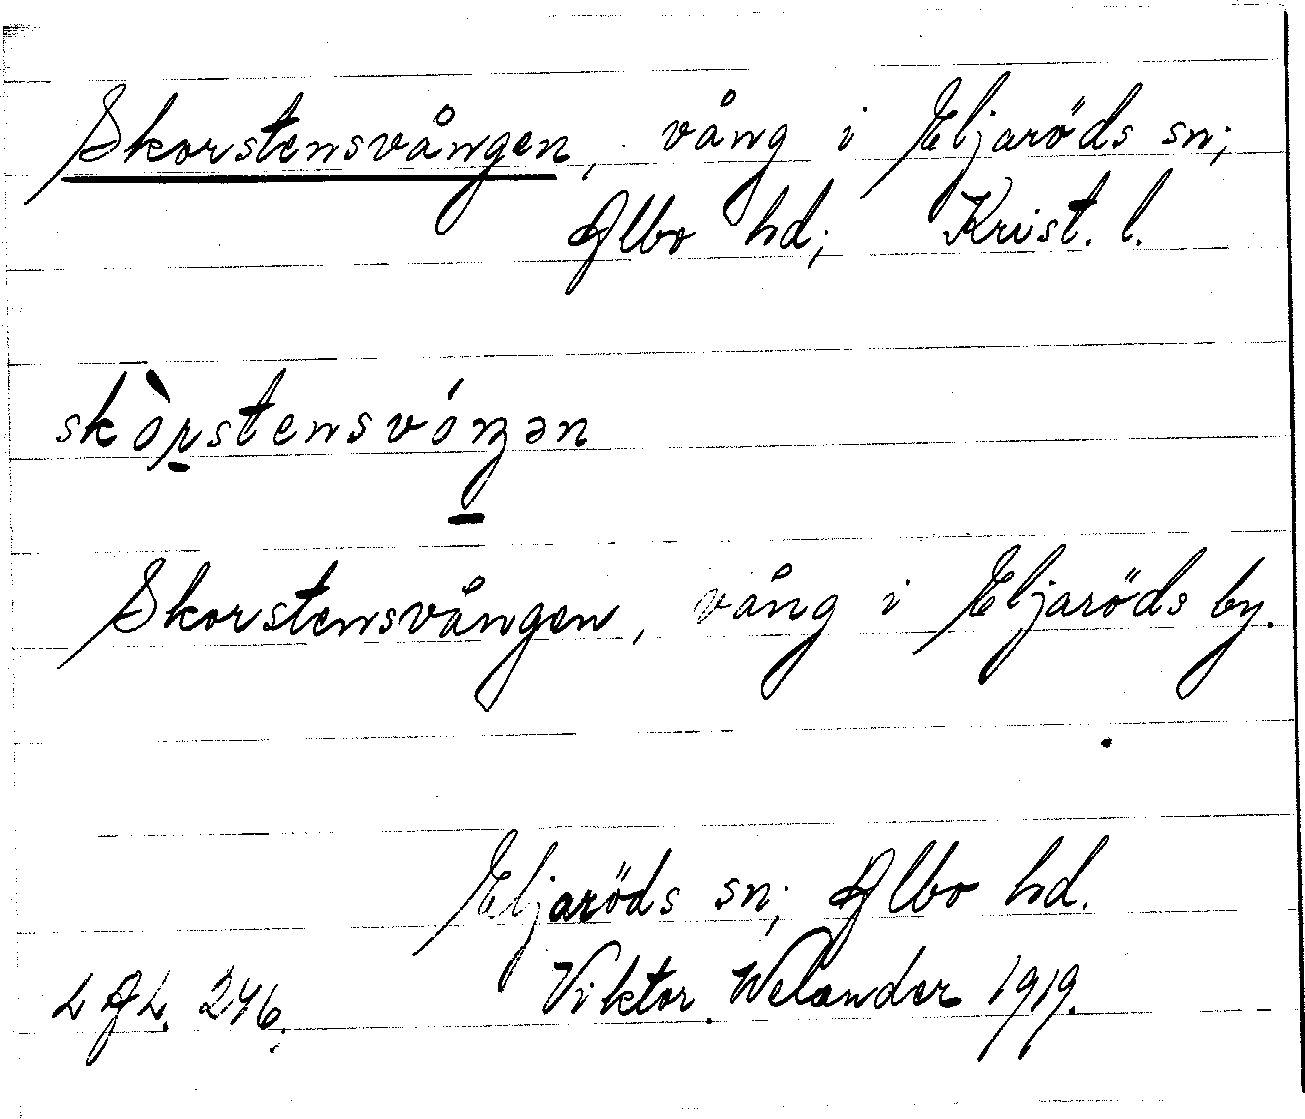 Skorstensvången, vång i Eljaröds sn;
Albo hd; Krist. l.
skòr̠stensvóŋ̠ən
Skorstensvången, vång i Eljaröds by.
Eljaröds sn; Albo hd.
LAL. 246. Viktor Welander 1919.